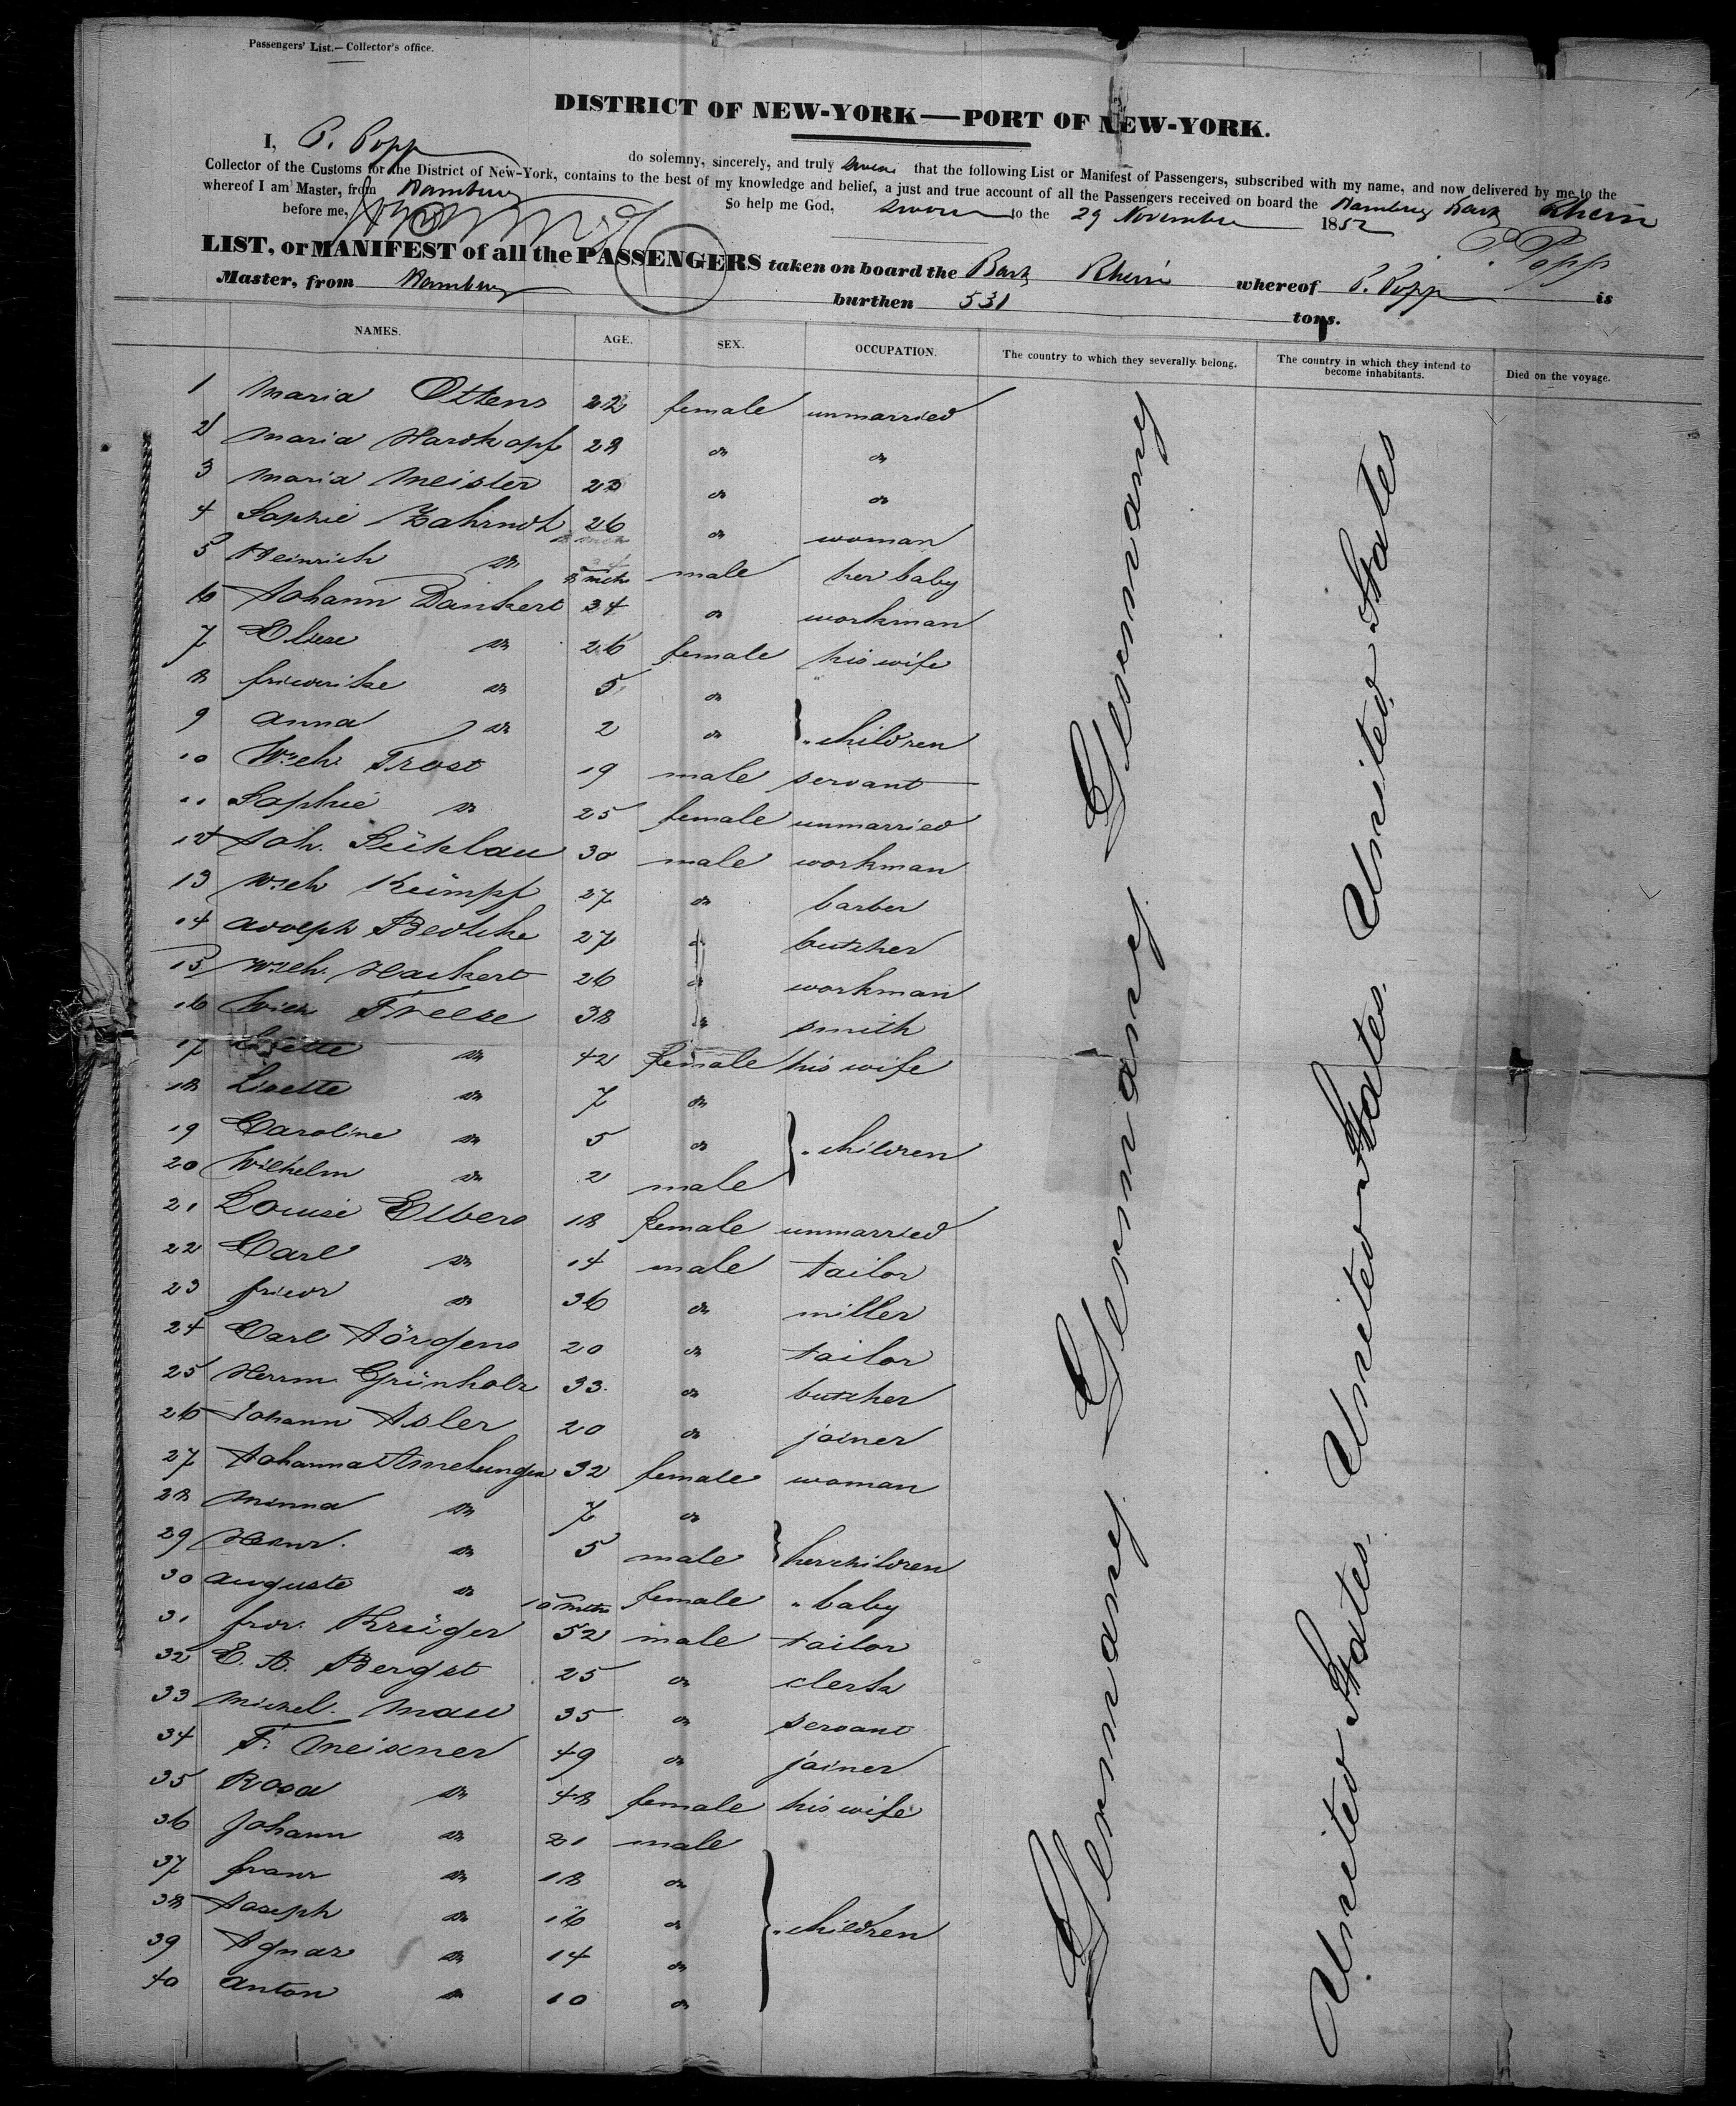 Passengers' List.—Collector's office.
DISTRICT OF NEW-YORK—PORT OF NEW-YORK.
I, P. Popp do solemny, sincerely, and truly swear that the following List or Manifest of Passengers, subscribed with my name, and now delivered by me to the
Collector of the Customs for the District of New-York, contains to the best of my knowledge and belief, a just and true account of all the Passengers received on board the Hamburg Bark Rhein
whereof I am Master, from Hamburg
So help me God,
before me, sworn to the 29 November 1852
P. Popp
LIST, or MANIFEST of all the PASSENGERS taken on board the Bark Rhein whereof P. Popp is
Master, from Hamburg burthen 531 tons.
NAMES. AGE. SEX. OCCUPATION. The country to which they severally belong. The country in which they intend to become inhabitants. Died on the voyage.
1 Maria Ottens 22 female unmarried
2 Maria Hardkopf 28 do do
3 Maria Meister 23 do do
4 Sophie Zahrndt 26 do woman
5 Heinrich do 8 mth male her baby
6 Johann Dankert 34 do workman
7 Eliese do 26 female his wife
8 Friederike do 5 do
9 Anna do 2 do " children
10 Wilh Trost 19 male servant
11 Sophie do 25 female unmarried
12 Joh. Lüthlau 30 male workman
13 Wilh Kümpf 27 do barber
14 Adolph Bedthke 27 do butcher
15 Wilh. Hackert 26 do workman
16 Wilh Freese 38 do smith
17 do 42 female his wife
18 Lisette do 7 do
19 Caroline do 5 do " children
20 Wilhelm do 2 male
21 Louise Elbers 18 female unmarried
22 Carl do 14 male tailor
23 Friedr do 36 do miller
24 Carl Jörgens 20 do tailor
25 Herrm Grünholz 33 do butcher
26 Johann Isler 20 do joiner
27 Johanna Amelungen 32 female woman
28 Minna do 7 do
29 Henr. do 5 male her children
30 Auguste do 10 mths female " baby
31 Frdr. Krüger 52 male tailor
32 E. A. Bergst 25 do clerk
33 Michel. Mau 35 do servant
34 F. Meixner 49 do joiner
35 Rosa do 48 female his wife
36 Johann do 21 male
37 Franz do 18 do
38 Joseph do 16 do " children
39 Ignaz do 14 do
40 Anton do 10 do
Germany Germany Germany Germany
United States United States. United States. United States